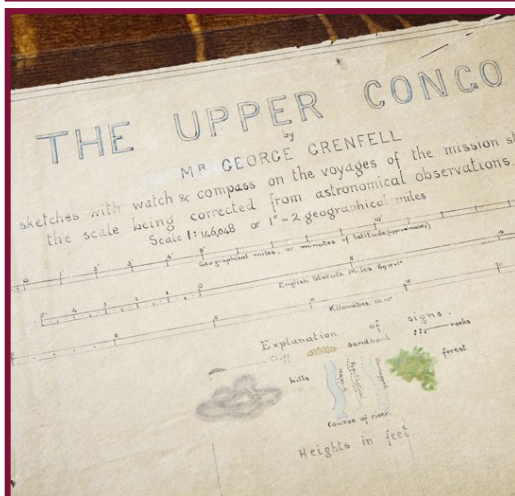 THE UPPER CONGO
by
MR GEORGE GRENFELL
sketches with watch & compass on the voyages of the mission
the scale being corrected from astronomical observations.
Scale 1: 146,048 or 1" = 2 geographical miles
Geographical miles, or minutes of latitude (approximately)
English Statute Miles
Kilometres
Explanation of signs.
Cliff sandbank rocks
hills forest
Course of river
Heights in feet